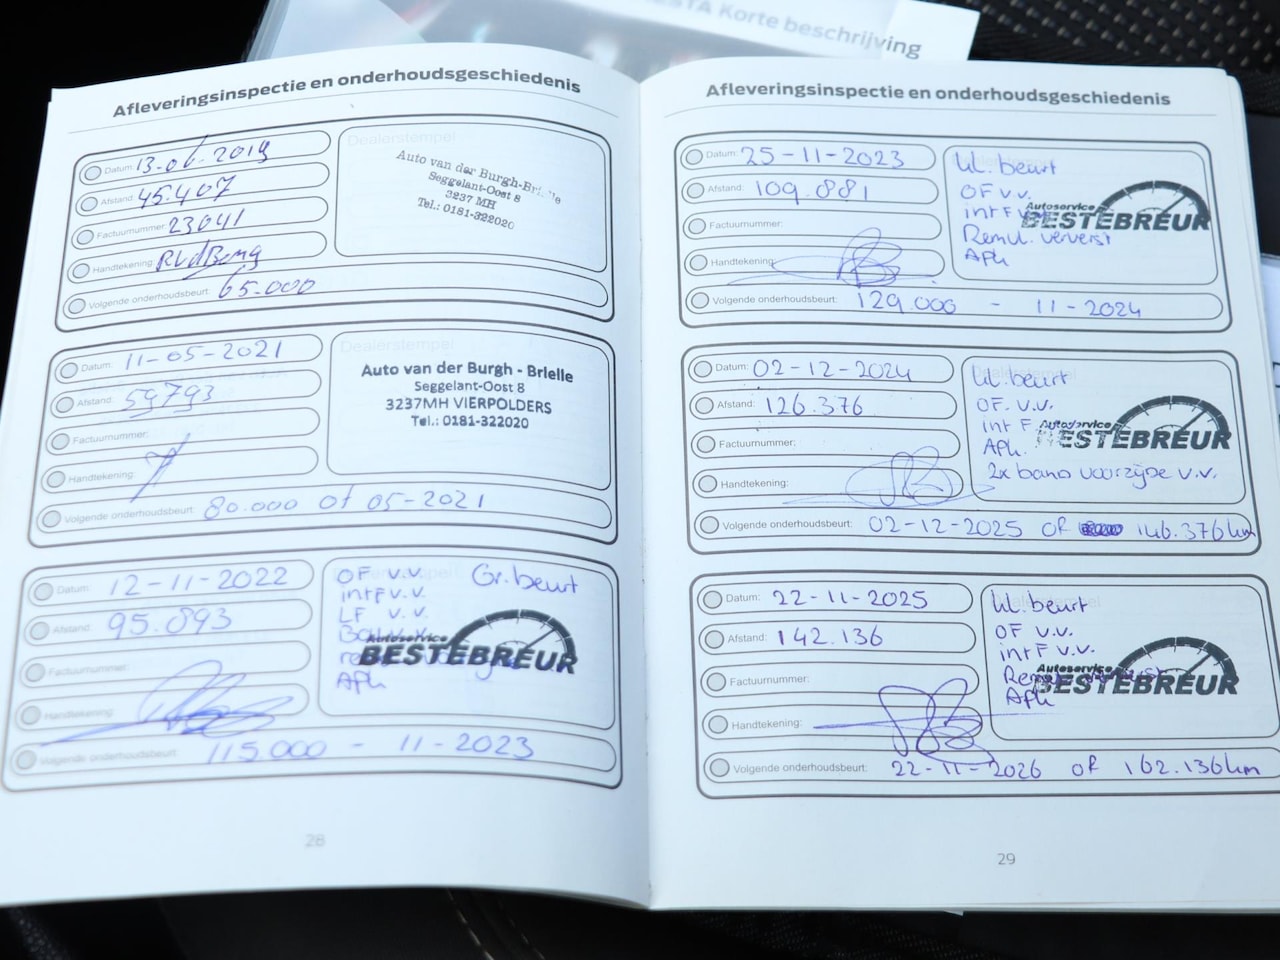 STA Korte beschrijving
Afleveringsinspectie en onderhoudsgeschiedenis
Datum: 13-06-2019
Afstand: 45.407
Factuurnummer: 23041
Handtekening:
Volgende onderhoudsbeurt: 65.000
Dealerstempel
Auto van der Burgh-Brielle
Seggelant-Oost 8
3237 MH
Tel.: 0181-322020
Datum: 11-05-2021
Afstand: 59793
Factuurnummer:
Handtekening:
Volgende onderhoudsbeurt: 80.000 of 05-2021
Dealerstempel
Auto van der Burgh - Brielle
Seggelant-Oost 8
3237MH VIERPOLDERS
Tel.: 0181-322020
Datum: 12-11-2022
Afstand: 95.893
Factuurnummer:
Handtekening:
Volgende onderhoudsbeurt: 115.000 - 11-2023
OF v.v. Gr. beurt
intF v.v.
LF v.v.
Autoservice
BESTEBREUR
Apk
28
Afleveringsinspectie en onderhoudsgeschiedenis
Datum: 25-11-2023
Afstand: 109.881
Factuurnummer:
Handtekening:
Volgende onderhoudsbeurt: 129.000 - 11-2024
kl. beurt
OF v.v.
intF v.v.
Autoservice
BESTEBREUR
Remvl. ververst
Apk
Datum: 02-12-2024
Afstand: 126.376
Factuurnummer:
Handtekening:
Volgende onderhoudsbeurt: 02-12-2025 of 146.376km
kl. beurt
OF. v.v.
int F
Autoservice
BESTEBREUR
Apk.
2x band voorzijde v.v.
Datum: 22-11-2025
Afstand: 142.136
Factuurnummer:
Handtekening:
Volgende onderhoudsbeurt: 22-11-2026 of 162.136km
kl. beurt
OF v.v.
intF v.v.
Autoservice
BESTEBREUR
Apk
29